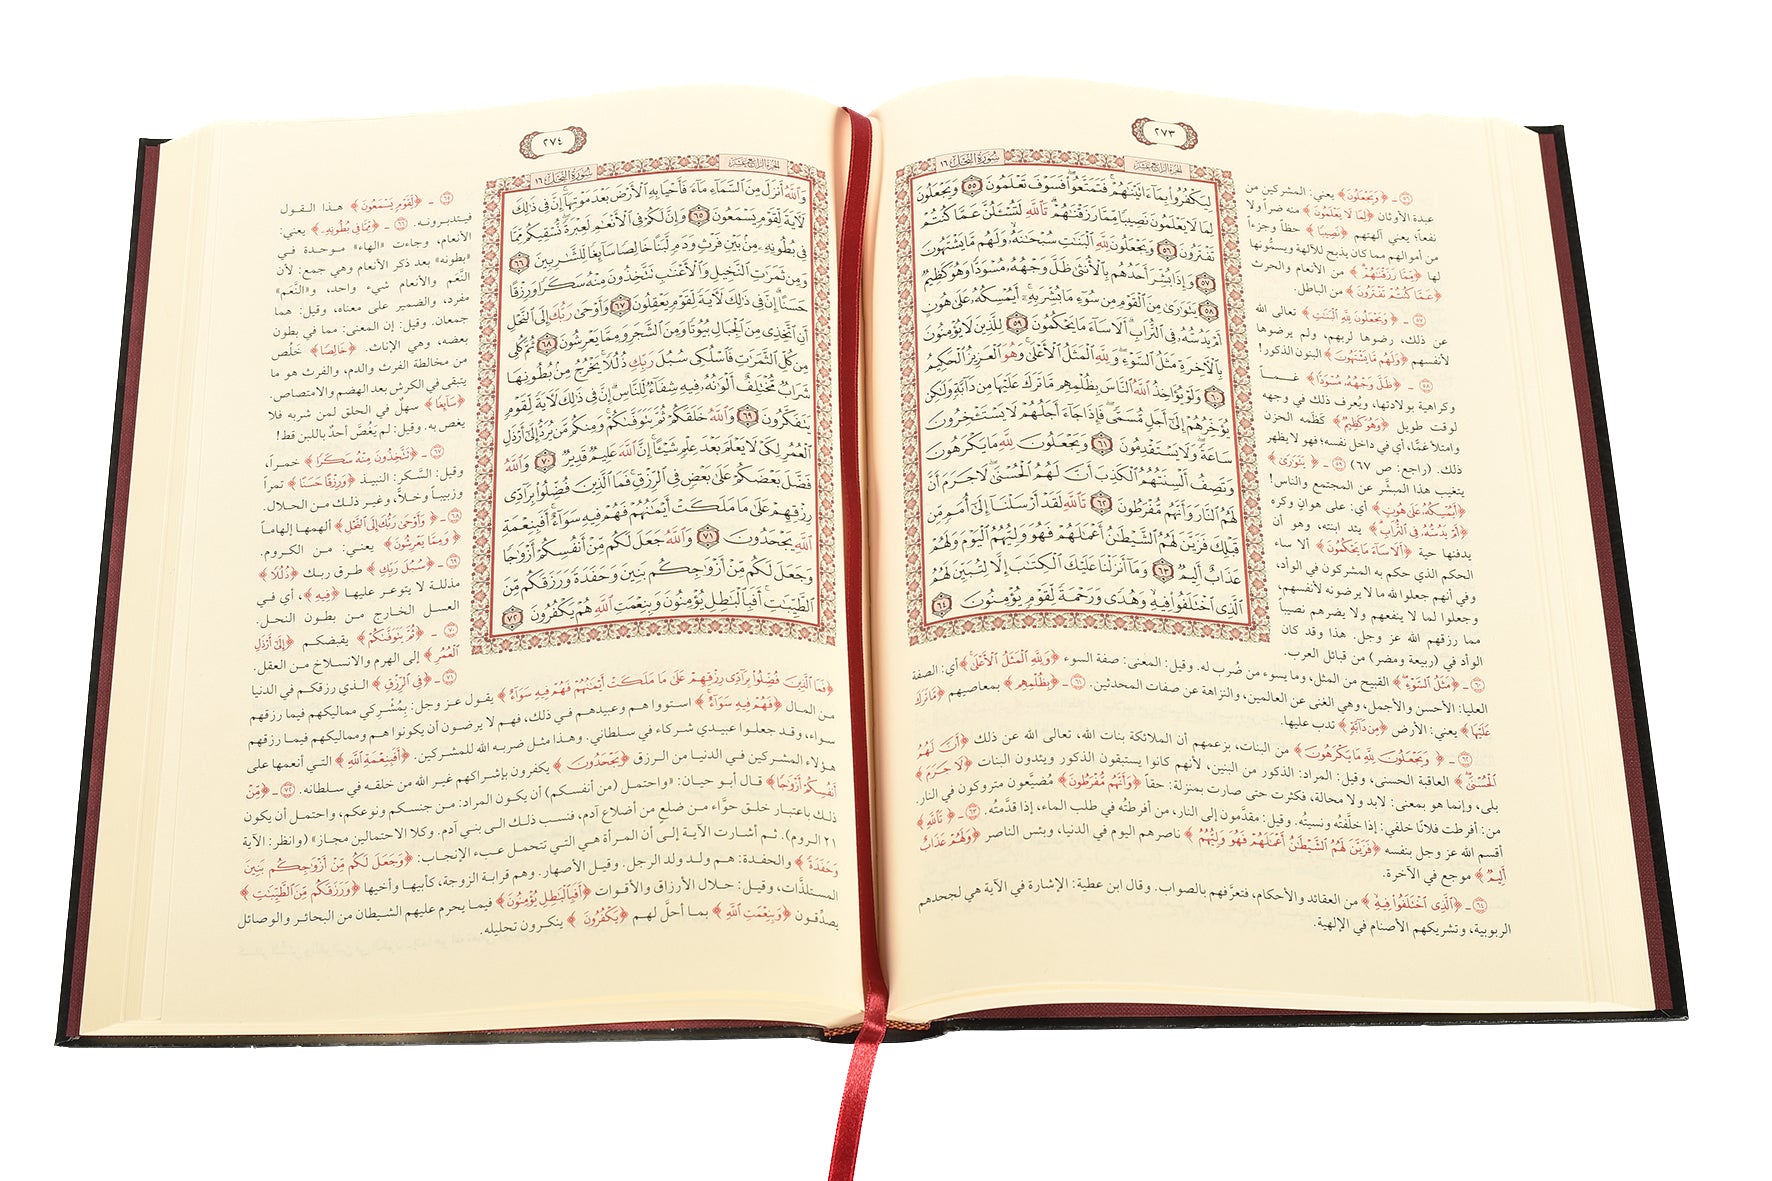 ٢٧٣
سورة النحل ١٦
الجزء الرابع عشر
لِيَكْفُرُوا۟ بِمَآ ءَاتَيْنَٰهُمْ ۚ فَتَمَتَّعُوا۟ ۖ فَسَوْفَ تَعْلَمُونَ ٥٥ وَيَجْعَلُونَ
لِمَا لَا يَعْلَمُونَ نَصِيبًا مِّمَّا رَزَقْنَٰهُمْ ۗ تَٱللَّهِ لَتُسْـَٔلُنَّ عَمَّا كُنتُمْ
تَفْتَرُونَ ٥٦ وَيَجْعَلُونَ لِلَّهِ ٱلْبَنَٰتِ سُبْحَٰنَهُۥ ۙ وَلَهُم مَّا يَشْتَهُونَ
٥٧ وَإِذَا بُشِّرَ أَحَدُهُم بِٱلْأُنثَىٰ ظَلَّ وَجْهُهُۥ مُسْوَدًّا وَهُوَ كَظِيمٌ
٥٨ يَتَوَٰرَىٰ مِنَ ٱلْقَوْمِ مِن سُوٓءِ مَا بُشِّرَ بِهِۦٓ ۚ أَيُمْسِكُهُۥ عَلَىٰ هُونٍ
أَمْ يَدُسُّهُۥ فِى ٱلتُّرَابِ ۗ أَلَا سَآءَ مَا يَحْكُمُونَ ٥٩ لِلَّذِينَ لَا يُؤْمِنُونَ
بِٱلْـَٔاخِرَةِ مَثَلُ ٱلسَّوْءِ ۖ وَلِلَّهِ ٱلْمَثَلُ ٱلْأَعْلَىٰ ۚ وَهُوَ ٱلْعَزِيزُ ٱلْحَكِيمُ
٦٠ وَلَوْ يُؤَاخِذُ ٱللَّهُ ٱلنَّاسَ بِظُلْمِهِم مَّا تَرَكَ عَلَيْهَا مِن دَآبَّةٍ وَلَٰكِن
يُؤَخِّرُهُمْ إِلَىٰٓ أَجَلٍ مُّسَمًّى ۖ فَإِذَا جَآءَ أَجَلُهُمْ لَا يَسْتَـْٔخِرُونَ
سَاعَةً ۖ وَلَا يَسْتَقْدِمُونَ ٦١ وَيَجْعَلُونَ لِلَّهِ مَا يَكْرَهُونَ
وَتَصِفُ أَلْسِنَتُهُمُ ٱلْكَذِبَ أَنَّ لَهُمُ ٱلْحُسْنَىٰ ۖ لَا جَرَمَ أَنَّ
لَهُمُ ٱلنَّارَ وَأَنَّهُم مُّفْرَطُونَ ٦٢ تَٱللَّهِ لَقَدْ أَرْسَلْنَآ إِلَىٰٓ أُمَمٍ مِّن
قَبْلِكَ فَزَيَّنَ لَهُمُ ٱلشَّيْطَٰنُ أَعْمَٰلَهُمْ فَهُوَ وَلِيُّهُمُ ٱلْيَوْمَ وَلَهُمْ
عَذَابٌ أَلِيمٌ ٦٣ وَمَآ أَنزَلْنَا عَلَيْكَ ٱلْكِتَٰبَ إِلَّا لِتُبَيِّنَ لَهُمُ
ٱلَّذِى ٱخْتَلَفُوا۟ فِيهِ ۙ وَهُدًى وَرَحْمَةً لِّقَوْمٍ يُؤْمِنُونَ ٦٤
٥٦ ـ ﴿وَيَجْعَلُونَ﴾ يعني: المشركين من
عبدة الأوثان ﴿لِمَا لَا يَعْلَمُونَ﴾ منه ضراً ولا
نفعاً؛ يعني آلهتهم ﴿نَصِيبًا﴾ حظاً وجزءاً
من أموالهم مما كان يذبح للآلهة ويسمُّونها
لها ﴿مِّمَّا رَزَقْنَٰهُمْ﴾ من الأنعام والحرث
﴿عَمَّا كُنتُمْ تَفْتَرُونَ﴾ من الباطل.
٥٧ ـ ﴿وَيَجْعَلُونَ لِلَّهِ ٱلْبَنَٰتِ﴾ تعالى الله
عن ذلك، رضوها لربهم، ولم يرضوها
لأنفسهم ﴿وَلَهُم مَّا يَشْتَهُونَ﴾ البنون الذكور!
٥٨ ـ ﴿ظَلَّ وَجْهُهُۥ مُسْوَدًّا﴾ غمــاً
وكراهية بولادتها، ويُعرف ذلك في وجهه
لوقت طويل ﴿وَهُوَ كَظِيمٌ﴾ كظَمه الحزن
وامتلأ غمّاً، أي في داخل نفسه؛ فهو لا يظهر
ذلك. (راجع: ص ٦٧) ٥٩ ـ ﴿يَتَوَٰرَىٰ﴾
يتغيب هذا المبشَّر عن المجتمع والناس!
﴿أَيُمْسِكُهُۥ عَلَىٰ هُونٍ﴾ أي: على هوانٍ وكره
﴿أَمْ يَدُسُّهُۥ فِى ٱلتُّرَابِ﴾ يئد ابنته، وهو أن
يدفنها حية ﴿أَلَا سَآءَ مَا يَحْكُمُونَ﴾ ألا ساء
الحكم الذي حكم به المشركون في الوأد،
وفي أنهم جعلوا لله ما لا يرضونه لأنفسهم،
وجعلوا لما لا ينفعهم ولا يضرهم نصيباً
مما رزقهم الله عز وجل. هذا وقد كان
الوأد في (ربيعة ومضر) من قبائل العرب.
٦٠ ـ ﴿مَثَلُ ٱلسَّوْءِ﴾ القبيح من المثل، وما يسوء من ضُرب له. وقيل: المعنى: صفة السوء ﴿وَلِلَّهِ ٱلْمَثَلُ ٱلْأَعْلَىٰ﴾ أي: الصفة
العليا: الأحسن والأجمل، وهي الغنى عن العالمين، والنزاهة عن صفات المحدثين. ٦١ ـ ﴿بِظُلْمِهِم﴾ بمعاصيهم ﴿مَّا تَرَكَ
عَلَيْهَا﴾ يعني: الأرض ﴿مِن دَآبَّةٍ﴾ تدب عليها.
٦٢ ـ ﴿وَيَجْعَلُونَ لِلَّهِ مَا يَكْرَهُونَ﴾ من البنات، بزعمهم أن الملائكة بنات الله، تعالى الله عن ذلك ﴿أَنَّ لَهُمُ
ٱلْحُسْنَىٰ﴾ العاقبة الحسنى، وقيل: المراد: الذكور من البنين، لأنهم كانوا يستبقون الذكور ويئدون البنات ﴿لَا جَرَمَ﴾
بلى، وإنما هو بمعنى: لابد ولا محالة، فكثرت حتى صارت بمنزلة: حقاً ﴿وَأَنَّهُم مُّفْرَطُونَ﴾ مُضيَّعون متروكون في النار.
من: أفرطت فلانًا خلفي: إذا خلَّفتُه ونسيتُه. وقيل: مقدَّمون إلى النار، من أفرطتُه في طلب الماء، إذا قدَّمتُه. ٦٣ ـ ﴿تَٱللَّهِ﴾
أقسم الله عز وجل بنفسه ﴿فَزَيَّنَ لَهُمُ ٱلشَّيْطَٰنُ أَعْمَٰلَهُمْ فَهُوَ وَلِيُّهُمُ﴾ ناصرهم اليوم في الدنيا، وبئس الناصر ﴿وَلَهُمْ عَذَابٌ
أَلِيمٌ﴾ موجع في الآخرة.
٦٤ ـ ﴿ٱلَّذِى ٱخْتَلَفُوا۟ فِيهِ﴾ من العقائد والأحكام، فتعرِّفهم بالصواب. وقال ابن عطية: الإشارة في الآية هي لجحدهم
الربوبية، وتشريكهم الأصنام في الإلهية.
٢٧٤
سورة النحل ١٦
الجزء الرابع عشر
وَٱللَّهُ أَنزَلَ مِنَ ٱلسَّمَآءِ مَآءً فَأَحْيَا بِهِ ٱلْأَرْضَ بَعْدَ مَوْتِهَآ ۚ إِنَّ فِى ذَٰلِكَ
لَـَٔايَةً لِّقَوْمٍ يَسْمَعُونَ ٦٥ وَإِنَّ لَكُمْ فِى ٱلْأَنْعَٰمِ لَعِبْرَةً ۖ نُّسْقِيكُم مِّمَّا
فِى بُطُونِهِۦ مِنۢ بَيْنِ فَرْثٍ وَدَمٍ لَّبَنًا خَالِصًا سَآئِغًا لِّلشَّٰرِبِينَ ٦٦
وَمِن ثَمَرَٰتِ ٱلنَّخِيلِ وَٱلْأَعْنَٰبِ تَتَّخِذُونَ مِنْهُ سَكَرًا وَرِزْقًا
حَسَنًا ۗ إِنَّ فِى ذَٰلِكَ لَـَٔايَةً لِّقَوْمٍ يَعْقِلُونَ ٦٧ وَأَوْحَىٰ رَبُّكَ إِلَى ٱلنَّحْلِ
أَنِ ٱتَّخِذِى مِنَ ٱلْجِبَالِ بُيُوتًا وَمِنَ ٱلشَّجَرِ وَمِمَّا يَعْرِشُونَ ٦٨ ثُمَّ كُلِى
مِن كُلِّ ٱلثَّمَرَٰتِ فَٱسْلُكِى سُبُلَ رَبِّكِ ذُلُلًا ۚ يَخْرُجُ مِنۢ بُطُونِهَا
شَرَابٌ مُّخْتَلِفٌ أَلْوَٰنُهُۥ فِيهِ شِفَآءٌ لِّلنَّاسِ ۗ إِنَّ فِى ذَٰلِكَ لَـَٔايَةً لِّقَوْمٍ
يَتَفَكَّرُونَ ٦٩ وَٱللَّهُ خَلَقَكُمْ ثُمَّ يَتَوَفَّىٰكُمْ ۚ وَمِنكُم مَّن يُرَدُّ إِلَىٰٓ أَرْذَلِ
ٱلْعُمُرِ لِكَىْ لَا يَعْلَمَ بَعْدَ عِلْمٍ شَيْـًٔا ۚ إِنَّ ٱللَّهَ عَلِيمٌ قَدِيرٌ ٧٠ وَٱللَّهُ
فَضَّلَ بَعْضَكُمْ عَلَىٰ بَعْضٍ فِى ٱلرِّزْقِ ۚ فَمَا ٱلَّذِينَ فُضِّلُوا۟ بِرَآدِّى
رِزْقِهِمْ عَلَىٰ مَا مَلَكَتْ أَيْمَٰنُهُمْ فَهُمْ فِيهِ سَوَآءٌ ۚ أَفَبِنِعْمَةِ
ٱللَّهِ يَجْحَدُونَ ٧١ وَٱللَّهُ جَعَلَ لَكُم مِّنْ أَنفُسِكُمْ أَزْوَٰجًا
وَجَعَلَ لَكُم مِّنْ أَزْوَٰجِكُم بَنِينَ وَحَفَدَةً وَرَزَقَكُم مِّنَ
ٱلطَّيِّبَٰتِ ۚ أَفَبِٱلْبَٰطِلِ يُؤْمِنُونَ وَبِنِعْمَتِ ٱللَّهِ هُمْ يَكْفُرُونَ ٧٢
٦٥ ـ ﴿لِّقَوْمٍ يَسْمَعُونَ﴾ هذا القول
فيتدبرونه. ٦٦ ـ ﴿مِّمَّا فِى بُطُونِهِۦ﴾ يعني:
الأنعام، وجاءت «الهاء» موحدة في
«بطونه» بعد ذكر الأنعام وهي جمع: لأن
النَّعَم والأنعام شيء واحد، و«النَّعَم»
مفرد، والضمير على معناه، وقيل: هما
جمعان. وقيل: إن المعنى: مما في بطون
بعضه، وهي الإناث. ﴿خَالِصًا﴾ خَلُص
من مخالطة الفرث والدم، والفرث هو ما
يتبقى في الكرش بعد الهضم والامتصاص.
﴿سَآئِغًا﴾ سهلٌ في الحلق لمن شربه فلا
يغص به. وقيل: لم يَغُصَّ أحدٌ باللبن قط!
٦٧ ـ ﴿تَتَّخِذُونَ مِنْهُ سَكَرًا﴾ خمراً،
وقيل: السَّكر: النبيذ ﴿وَرِزْقًا حَسَنًا﴾ تمراً
وزبيباً وخلاًّ، وغير ذلك من الحلال.
٦٨ ـ ﴿وَأَوْحَىٰ رَبُّكَ إِلَى ٱلنَّحْلِ﴾ ألهمها إلهاماً
﴿وَمِمَّا يَعْرِشُونَ﴾ يعني: من الكروم.
٦٩ ـ ﴿سُبُلَ رَبِّكِ﴾ طرق ربك ﴿ذُلُلًا﴾
مذللة لا يتوعر عليها ﴿فِيهِ﴾، أي في
العسل الخارج من بطون النحل.
٧٠ ـ ﴿ثُمَّ يَتَوَفَّىٰكُمْ﴾ يقبضكم ﴿إِلَىٰٓ أَرْذَلِ
ٱلْعُمُرِ﴾ إلى الهرم والانسلاخ من العقل.
٧١ ـ ﴿فِى ٱلرِّزْقِ﴾ الذي رزقكم في الدنيا
﴿فَمَا ٱلَّذِينَ فُضِّلُوا۟ بِرَآدِّى رِزْقِهِمْ عَلَىٰ مَا مَلَكَتْ أَيْمَٰنُهُمْ فَهُمْ فِيهِ سَوَآءٌ﴾ يقول عز وجل: بِمُشْرِكي مماليكهم فيما رزقهم
من المال ﴿فَهُمْ فِيهِ سَوَآءٌ﴾ استووا هم وعبيدهم في ذلك، فهم لا يرضون أن يكونوا هم ومماليكهم فيما رزقهم
سواء، وقد جعلوا عبيدي شركاء في سلطاني. وهذا مثل ضربه الله للمشركين. ﴿أَفَبِنِعْمَةِ ٱللَّهِ﴾ التي أنعمها على
هؤلاء المشركين في الدنيا من الرزق ﴿يَجْحَدُونَ﴾ يكفرون بإشراكهم غير الله من خلقه في سلطانه. ٧٢ ـ ﴿مِّنْ
أَنفُسِكُمْ أَزْوَٰجًا﴾ قال أبو حيان: «واحتمل (من أنفسكم) أن يكون المراد: من جنسكم ونوعكم، واحتمل أن يكون
ذلك باعتبار خلق حوّاء من ضلع من أضلاع آدم، فنسب ذلك إلى بني آدم. وكلا الاحتمالين مجاز» (وانظر: الآية
٢١ الروم). ثم أشارت الآية إلى أن المرأة هي التي تتحمل عبء الإنجاب: ﴿وَجَعَلَ لَكُم مِّنْ أَزْوَٰجِكُم بَنِينَ
وَحَفَدَةً﴾ والحفدة: هم ولد ولد الرجل. وقيل الأصهار. وهم قرابة الزوجة، كأبيها وأخيها ﴿وَرَزَقَكُم مِّنَ ٱلطَّيِّبَٰتِ﴾
المستلذَّات، وقيل: حلال الأرزاق والأقوات ﴿أَفَبِٱلْبَٰطِلِ يُؤْمِنُونَ﴾ فيما يحرم عليهم الشيطان من البحائر والوصائل
يصدِّقون ﴿وَبِنِعْمَتِ ٱللَّهِ﴾ بما أحلَّ لهم ﴿يَكْفُرُونَ﴾ ينكرون تحليله.